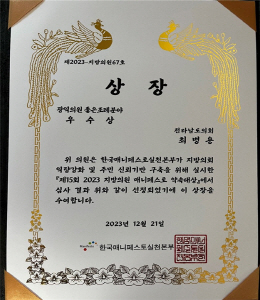 제2023-지방의원67호
상 장
광역의원 좋은조례분야
우 수 상
전라남도의회
최 병 용
위 의원은 한국매니페스토실천본부가 지방의회
역량강화 및 주민 신뢰기반 구축을 위해 실시한
『제15회 2023 지방의원 매니페스토 약속대상』에서
심사 결과 위와 같이 선정되었기에 이 상장을
수여합니다.
2023년 12월 21일
한국매니페스토실천본부